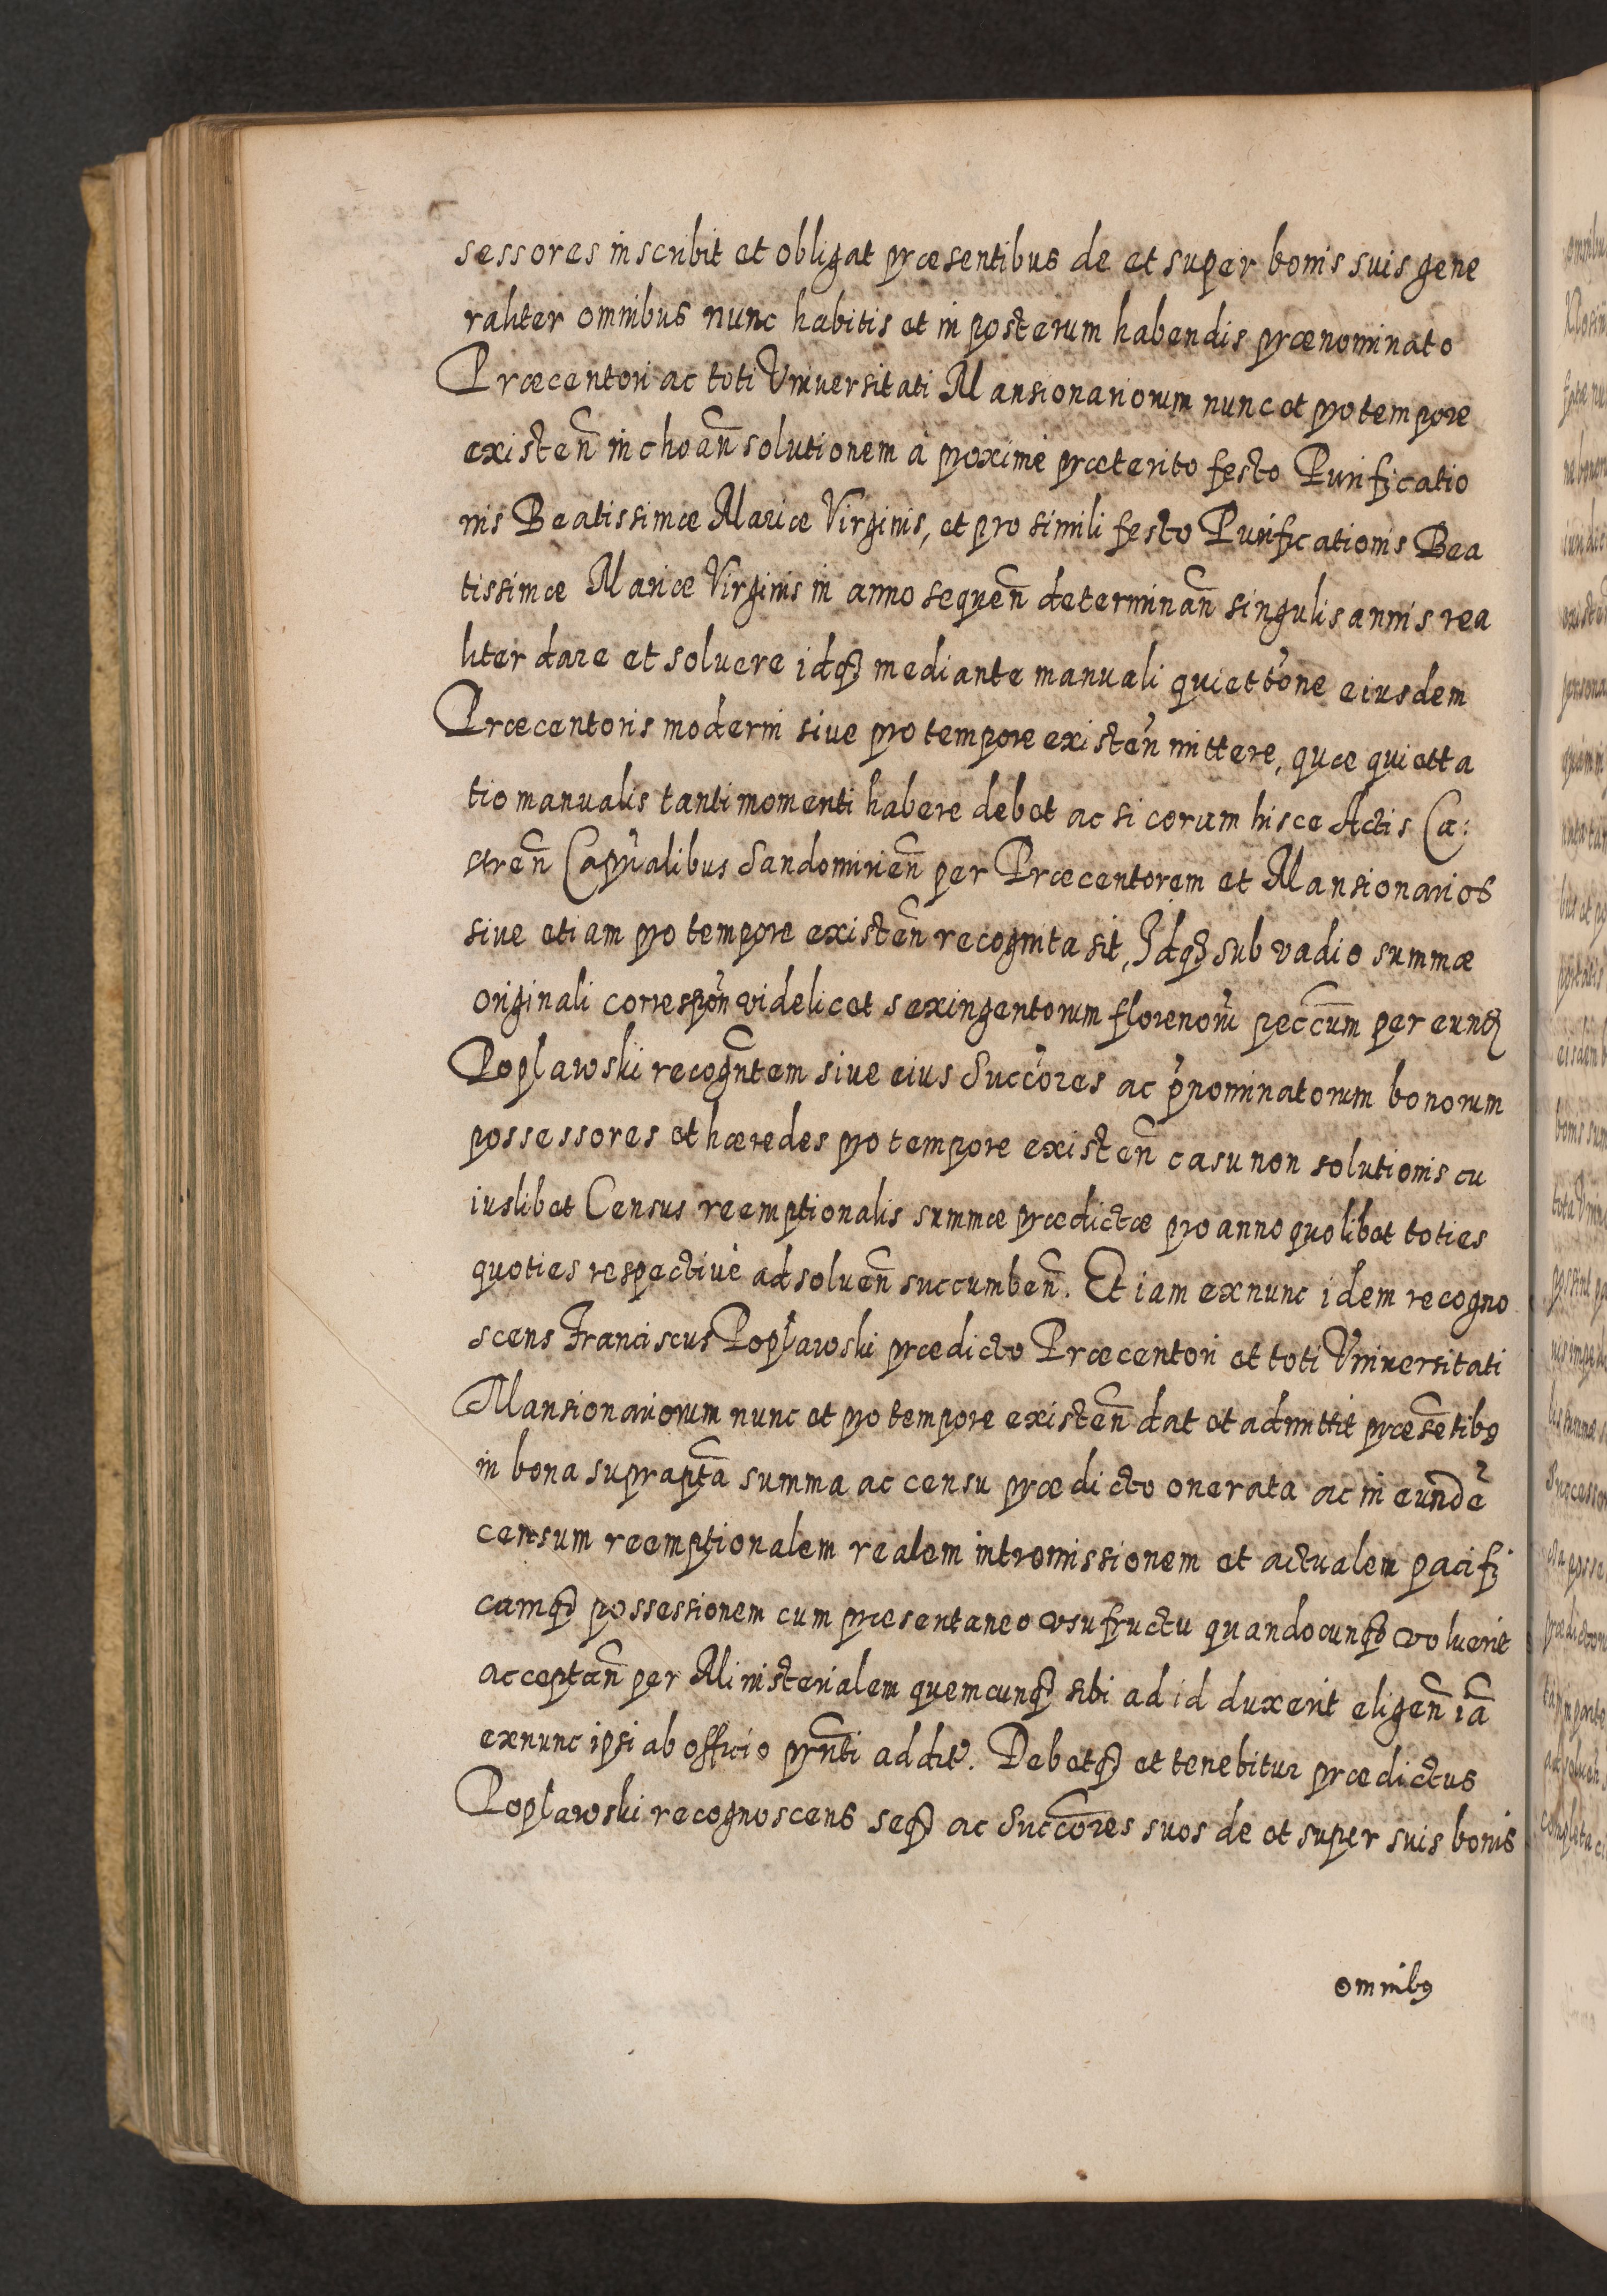 sessores inscribit et obligat præsentibus de et super bonis suis gene
raliter omnibus nunc habitis et in posterum habendis prænominato
Præcentori ac toti Vniuersitati Mansionariorum nunc et pro tempore
existen̄ inchoan̄ solutionem à proximè præterito festo Purificatio
nis Beatissimæ Mariæ Virginis, et pro simili festo Purificationis Bea
tissimæ Mariæ Virginis in anno sequen̄ determinan̄ singulis annis rea
liter dare et soluere idq₃ mediante manuali quiettõne eiusdem
Præcentoris moderni siue pro tempore existen̄ mittere, quæ quietta
tio manualis tanti momenti habere debet ac si coram hisce Actis Ca:
stren̄ Capn̄alibus Sandomirien̄ per Præcentorem et Mansionarios
siue etiam pro tempore existen̄ recognita sit, Idq₃ sub vadio summæ
originali correspon̄ videlicet sexingentorum florenorũ pecc̄um per eund₃
Poplawski recogn̄tem siue eius Succ̃ores ac p̃nominatorum bonorum
possessores et hæredes pro tempore existen̄ casu non solutionis cu
iuslibet Census reemptionalis summæ prædictæ pro anno quolibet toties
quoties respectiuè ad soluen̄ succumben̄. Et iam exnunc idem recogno
scens Franciscus Popławski prædicto Præcentori et toti Vniuersitati
Mansionariorum nunc et pro tempore existen̄ dat et admittit præsētib9
in bona suprapt̄a summa ac censu prædicto onerata ac in eundẽ
censum reemptionalem realem intromissionem et actualem pacifi
camq₃ possessionem cum præsentaneo vsufructu quandocunq₃ voluerit
acceptan̄ per Ministerialem quemcunq₃ sibi ad id duxerit eligen̄ iā
exnunc ipsi ab officio prn̄ti addit̃. Debetq₃ et tenebitur prædictus
Popławski recognoscens seq₃ ac Succ̄ores suos de et super suis bonis
omnib9